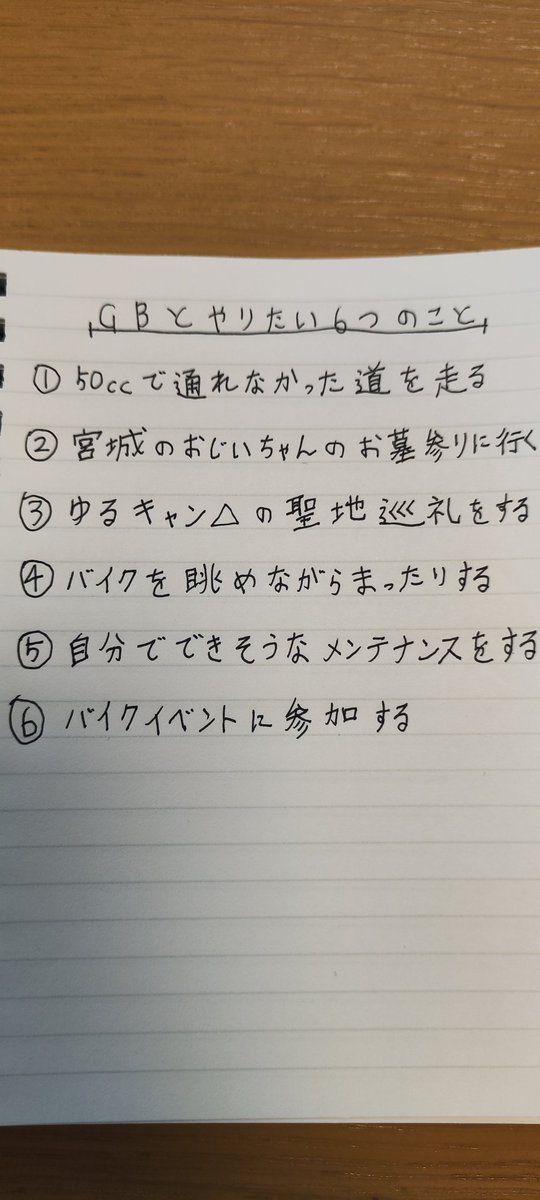 GBとやりたい6つのこと
①50ccで通れなかった道を走る
②宮城のおじいちゃんのお墓参りに行く
③ゆるキャン△の聖地巡礼をする
④バイクを眺めながらまったりする
⑤自分でできそうなメンテナンスをする
⑥バイクイベントに参加する